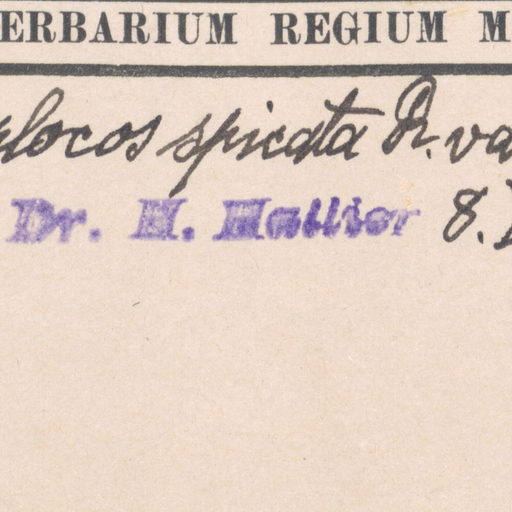 ERBARIUM REGIUM M
locos spicata Br. va
Dr. H. Hallier 8.